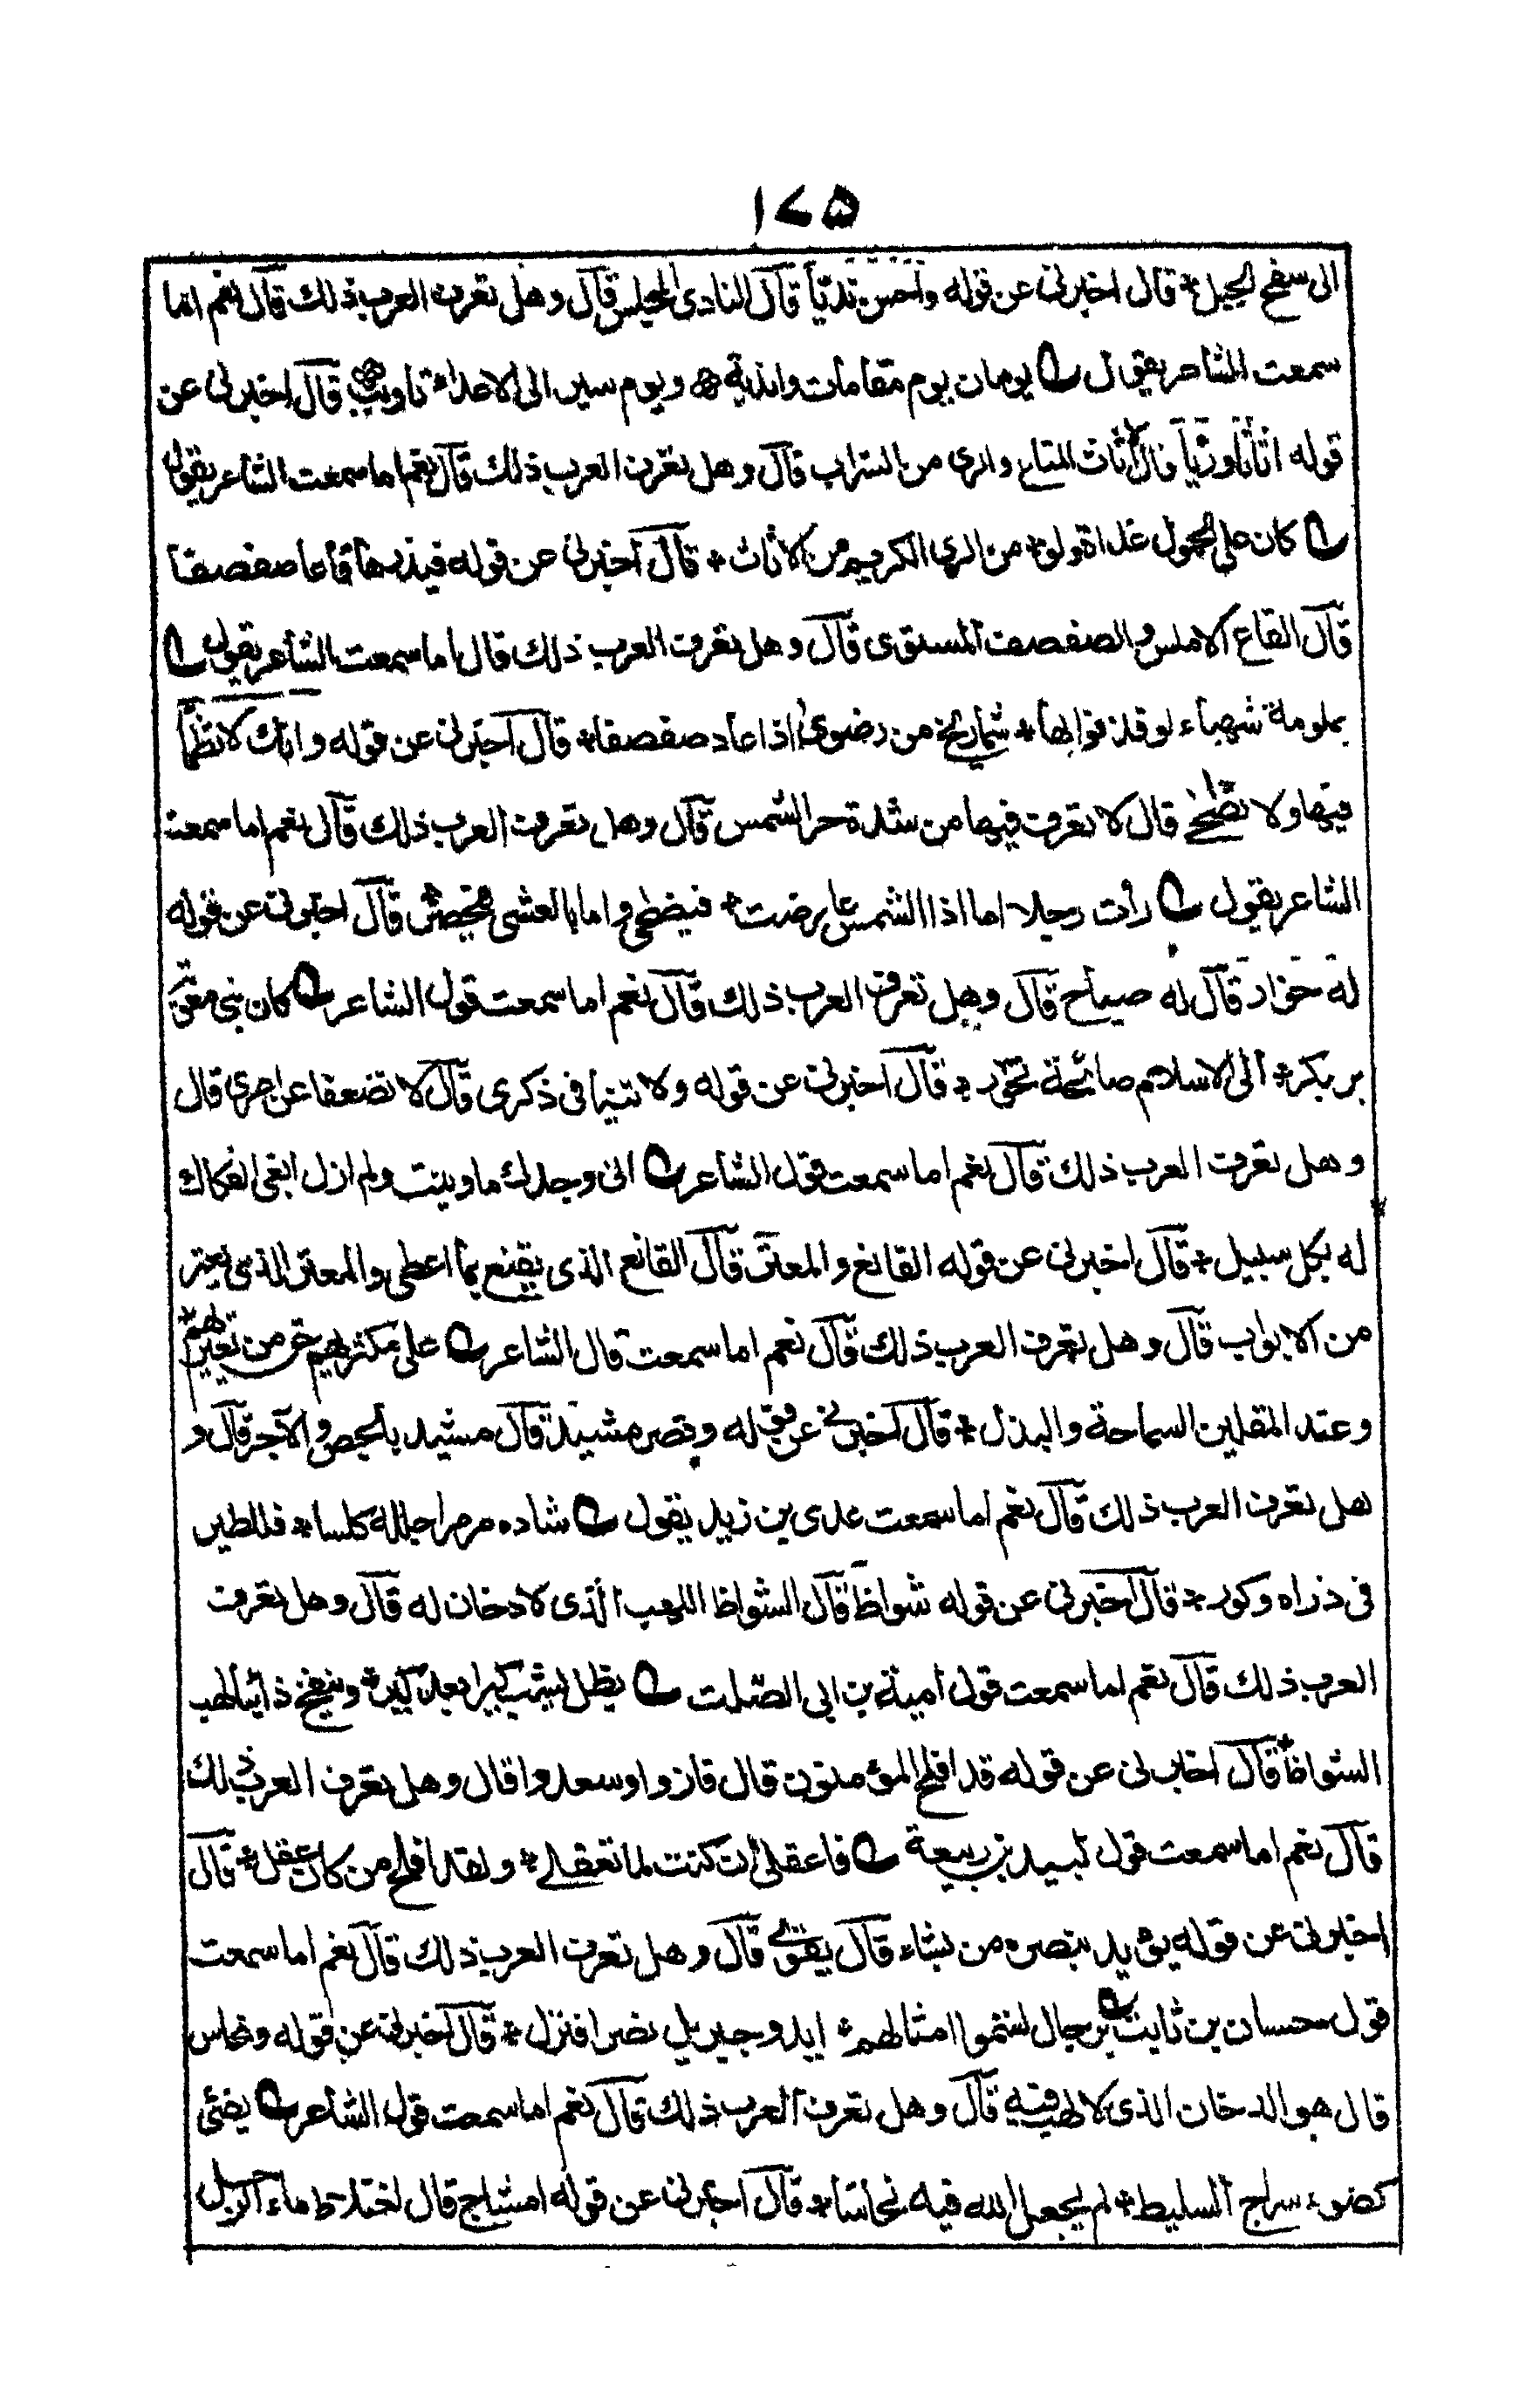 ١٧٥
الى سفح الجبل * قال اخبرنى عن قوله واحسن نديّاً قال النادى المجلس قال وهل تعرف العرب ذلك قال نعم اما
سمعت الشاعر يقول يومان يوم مقامات واندية ويوم سير الى الاعداء تاويب قال اخبرنى عن
قوله اثاثا ورئيا قال الاثاث المتاع والرى من الشراب قال وهل تعرف العرب ذلك قال نعم اما سمعت الشاعر يقول
كان على الحمول غداة ولو * من الرى الكريم من الاثاث * قال اخبرنى عن قوله فيذرها قاعا صفصفا
قال القاع الاملس والصفصف المستوى قال وهل تعرف العرب ذلك قال اما سمعت الشاعر يقول
بملومة شهباء لو قذفوا بها * شماريخ من رضوى اذا عاد صفصفا * قال اخبرنى عن قوله وانك لا تظمأ
فيها ولا تضحى قال لا تعرف فيها من شدة حر الشمس قال وهل تعرف العرب ذلك قال نعم اما سمعت
الشاعر يقول رأت رجلا اما اذا الشمس عارضت * فيضحى واما بالعشى فيخصر * قال اخبرنى عن قوله
له خوار قال له صياح قال وهل تعرف العرب ذلك قال نعم اما سمعت قول الشاعر كان بنى معوية
بن بكر * الى الاسلام صائحة تخور * قال اخبرنى عن قوله ولا تنيا فى ذكرى قال لا تضعفا عن امرى قال
وهل تعرف العرب ذلك قال نعم اما سمعت قول الشاعر انى وجدك ما ونيت ولم ازل ابغى الفكاك
له بكل سبيل * قال اخبرنى عن قوله القانع والمعتر قال القانع الذى يقنع بما اعطى والمعتر الذى يعتر
من الابواب قال وهل تعرف العرب ذلك قال نعم اما سمعت قال الشاعر على مكثريهم حق من يعتريهم
وعند المقلين السماحة والبذل * قال اخبرنى عن قوله وقصر مشيد قال مشيد بالجص والآجر قال و
هل تعرف العرب ذلك قال نعم اما سمعت عدى بن زيد يقول شاده مرمرا جلله كلسا * فللطير
فى ذراه وكور * قال اخبرنى عن قوله شواظ قال الشواظ اللهب الذى لا دخان له قال وهل تعرف
العرب ذلك قال نعم اما سمعت قول امية بن ابى الصلت يظل يشب كيرا بعد كير * وينفخ دائبا لهب
الشواظ * قال اخبرنى عن قوله قد افلح المؤمنون قال فازوا وسعدوا قال وهل تعرف العرب ذلك
قال نعم اما سمعت قول لبيد بن ربيعة فاعقلى ان كنت لما تعقلى * ولقد افلح من كان عقل * قال
اخبرنى عن قوله يؤيد بنصره من يشاء قال يقوى قال وهل تعرف العرب ذلك قال نعم اما سمعت
قول حسان بن ثابت برجال لستموا امثالهم * ايدوا جبريل نصرا فنزل * قال اخبرنى عن قوله ونحاس
قال هو الدخان الذى لا لهب فيه قال وهل تعرف العرب ذلك قال نعم اما سمعت قول الشاعر يضئ
كضوء سراج السليط * لم يجعل الله فيه نحاسا * قال اخبرنى عن قوله امشاج قال اختلاط ماء الرجل